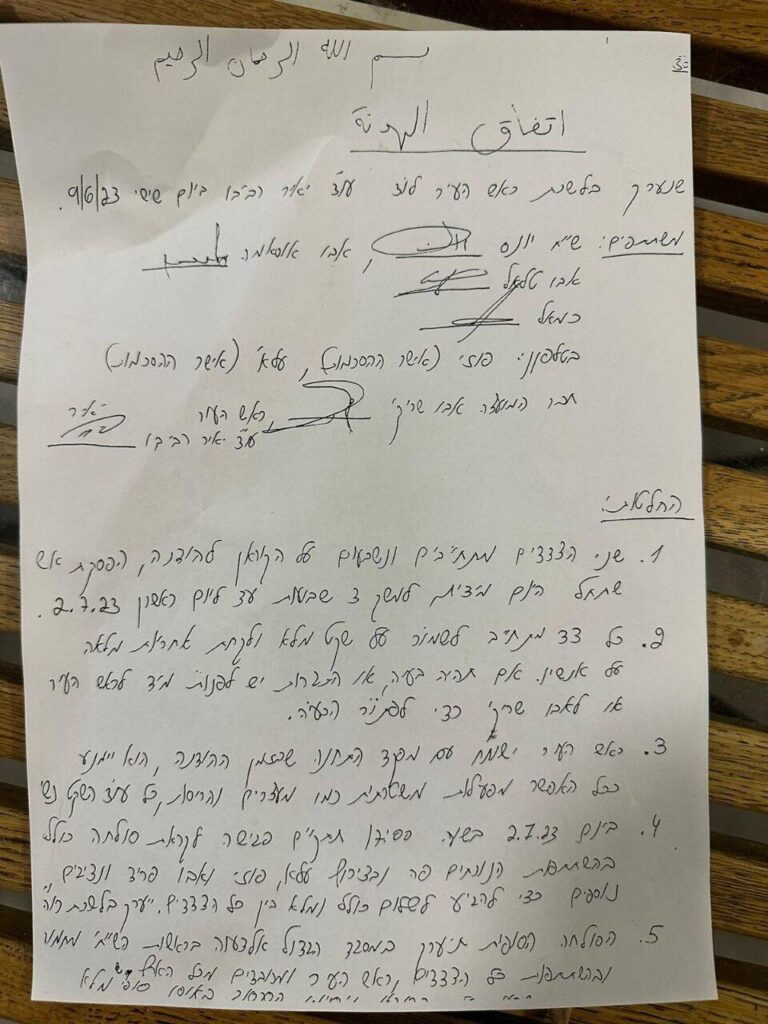 בס"ד
بسم الله الرحمان الرحيم
اتفاق الهدنة
שנערך בלשכת ראש העיר לוד עו"ד יאיר רביבו ביום שישי 9/6/23.
משתתפים: שייח יונס, אבו אוסאמה
אבו טלאל
כמאל
בטלפון: פוזי (אישר ההסכמות), עלאא (אישר ההסכמות)
חבר המועצה אבו שריקי, ראש העיר
עו"ד יאיר רביבו
החלטות:
1. שני הצדדים מתחייבים ונשבעים על הקוראן להודנה, הפסקת אש
שתחל היום מיידית למשך 3 שבועות עד ליום ראשון 2.7.23.
2. כל צד מתחייב לשמור על שקט מלא ולקחת אחריות מלאה
על אנשיו. אם תהיה בעיה, או התגרות יש לפנות מיד לראש העיר
או לאבו שריקי כדי לפתור הבעיה.
3. ראש העיר ישוחח עם מפקד התחנה שבזמן ההודנה, הוא יימנע
ככל האפשר מפעילות משטרתית כמו מעצרים והריסות, כל עוד השקט
4. ביום 2.7.23 בשעה תתקיים פגישה לקראת סולחה כולל
בהשתתפות הנוכחים פה ובצירוף עלאא, פוזי ואבו פריד ונציגים
נוספים כדי להגיע לשלום כולל ומלא בין כל הצדדים. ייערך בלשכת
5. הסולחה הסופית תיערך במסגד הגדול אלדעווה בראשות השייח'
ובהשתתפות כל הצדדים, ראש העיר ומכובדים מכל הארץ